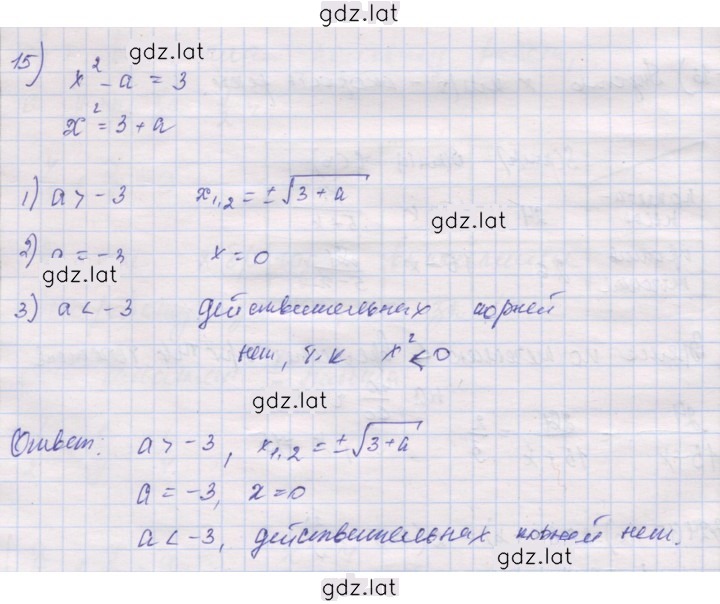 gdz.lat
gdz.lat
15) x² - a = 3
x² = 3 + a
1) a > -3 x₁,₂ = ±√(3 + a)
gdz.lat
2) a = -3 x = 0
gdz.lat
3) a < -3 действительных корней
нет, т.к x² < 0
gdz.lat
Ответ: a > -3, x₁,₂ = ±√(3 + a)
a = -3, x = 0
a < -3, действительных корней нет.
gdz.lat
gdz.lat